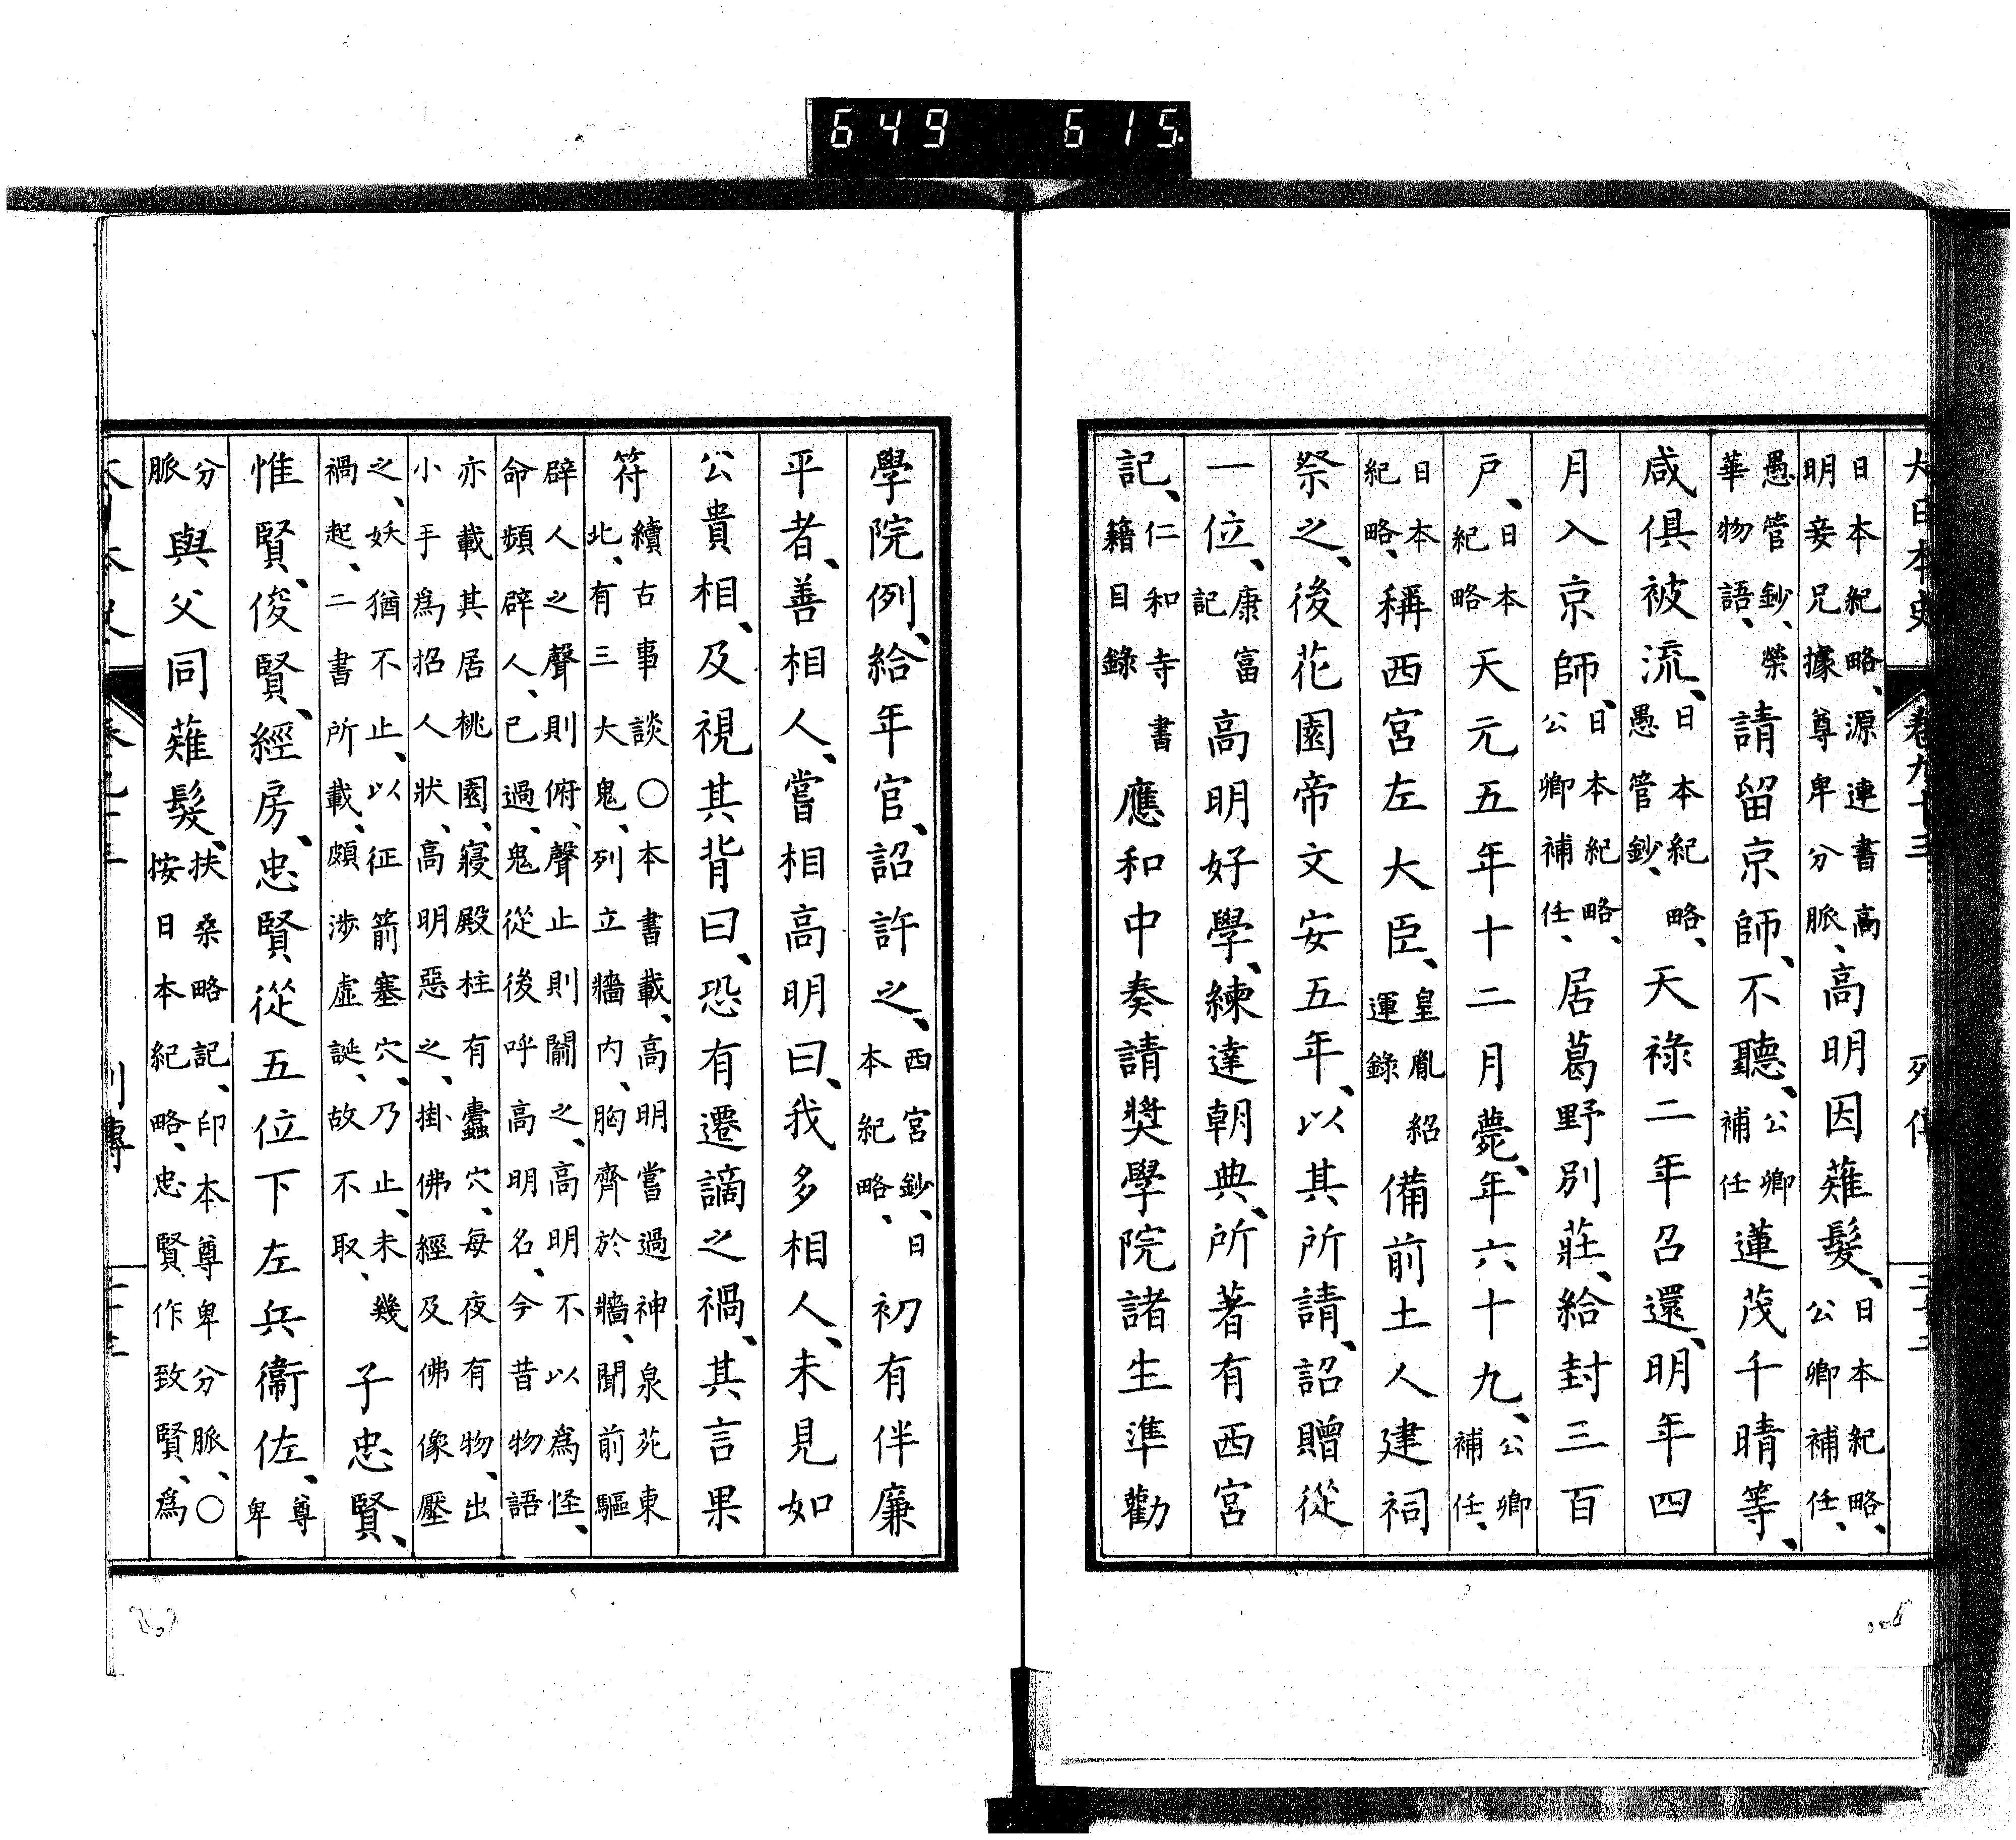 649 615.
大日本史 卷九十三 列傳 二十二
日本紀略、源連書高明妾兄據尊卑分脈、高明因薙髮、日本紀略、公卿補任、
愚管鈔、榮華物語、請留京師、不聽、公卿補任蓮茂千晴等、
咸俱被流、日本紀略、愚管鈔、天祿二年召還、明年四
月入京師、日本紀略、公卿補任、居葛野別莊、給封三百
戶、日本紀略天元五年十二月薨、年六十九、公卿補任、
日本紀略、稱西宮左大臣、皇胤紹運錄備前土人建祠
祭之、後花園帝文安五年、以其所請、詔贈從
一位、康富記高明好學、練達朝典、所著有西宮
記、仁和寺書籍目錄應和中奏請奬學院諸生準勸
學院例、給年官、詔許之、西宮鈔、日本紀略、初有伴廉
平者、善相人、嘗相高明曰、我多相人、未見如
公貴相、及視其背曰、恐有遷謫之禍、其言果
符續古事談〇本書載、高明嘗過神泉苑東北、有三大鬼、列立牆內、胸齊於牆、聞前驅
辟人之聲則俯、聲止則闞之、高明不以爲怪、命頻辟人、已過、鬼從後呼高明名、今昔物語
亦載其居桃園、寢殿柱有蠹穴、每夜有物、出小手爲招人狀、高明惡之、掛佛經及佛像壓
之、妖猶不止、以征箭塞穴、乃止、未幾禍起、二書所載、頗涉虛誕、故不取、子忠賢、
惟賢、俊賢、經房、忠賢從五位下左兵衞佐、尊卑
分脈與父同薙髮、扶桑略記、印本尊卑分脈、〇按日本紀略、忠賢作致賢、爲